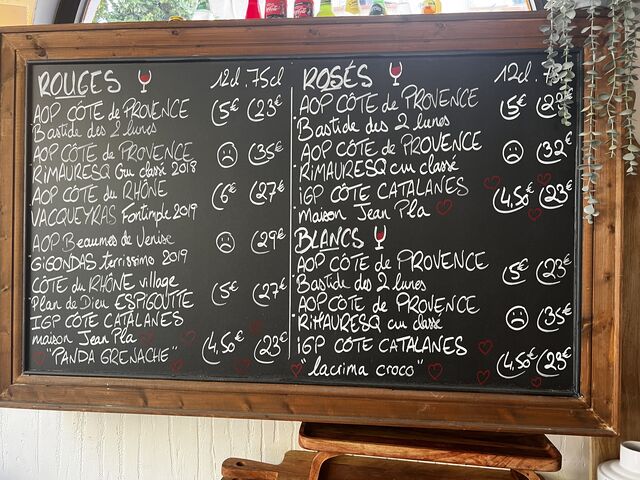 ROUGES 12cl. 75cl
AOP CÔTE de PROVENCE 5€ 23€
Bastide des 2 lunes
AOP CÔTE de PROVENCE 35€
RiMAURESQ Cru classé 2018
AOP CÔTE du RHÔNE 6€ 27€
VACQUEYRAS Fontimple 2019
AOP Beaumes de Venise 29€
GiGONDAS terrissimo 2019
CÔTE du RHÔNE village 5€ 27€
Plan de Dieu ESPIGOUTTE
IGP CÔTE CATALANES
maison Jean Pla 4,50€ 23€
"PANDA GRENACHE"
ROSÉS 12cl.
AOP CÔTE de PROVENCE 5€ 23€
Bastide des 2 lunes
AOP CÔTE de PROVENCE 32€
RiMAURESQ cru classé
iGP CÔTE CATALANES 4,50€ 23€
maison Jean Pla
BLANCS
AOP CÔTE de PROVENCE 5€ 23€
Bastide des 2 lunes
AOP CÔTE de PROVENCE 35€
RiMAURESQ cru classé
iGP CÔTE CATALANES 4,50€ 23€
"lacrima croco"